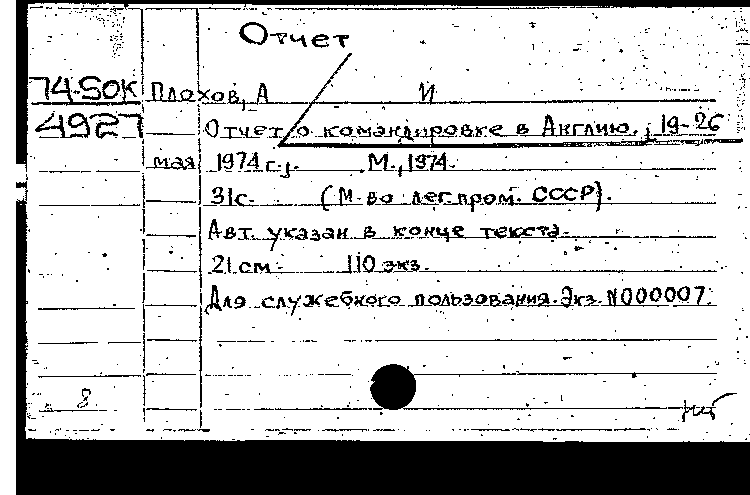 Отчет
74-SOK Плохов, А И
4927 Отчет о командировке в Англию. ; 19-26
мая 1974 г.j. М., 1974.
31с. (М-во лег. пром. СССР).
Авт. указан в конце текста.
21 см. 110 экз.
Для служебного пользования. Экз. N000007.
8